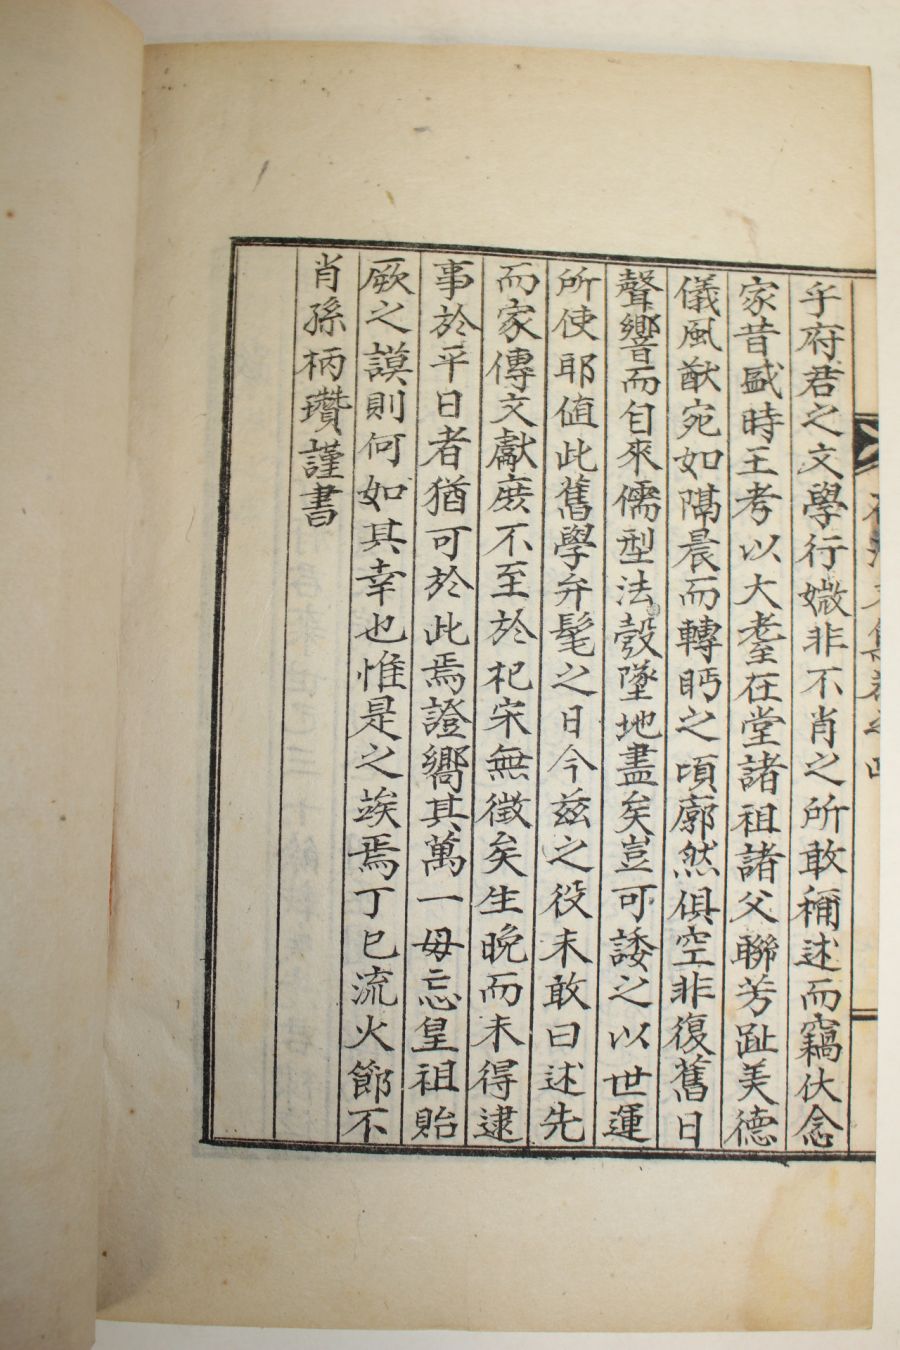 文集卷之四
乎府君之文學行媺非不肖之所敢稱述而竊伏念
家昔盛時王考以大耋在堂諸祖諸父聯芳趾美德
儀風猷宛如隔晨而轉眄之頃廓然俱空非復舊日
聲響而自來儒型法彀墜地盡矣豈可諉之以世運
所使耶値此舊學弁髦之日今玆之役未敢曰述先
而家傳文獻庶不至於杞宋無徵矣生晩而未得逮
事於平日者猶可於此焉證嚮其萬一毋忘皇祖貽
厥之謨則何如其幸也惟是之竢焉丁巳流火節不
肖孫柄瓚謹書